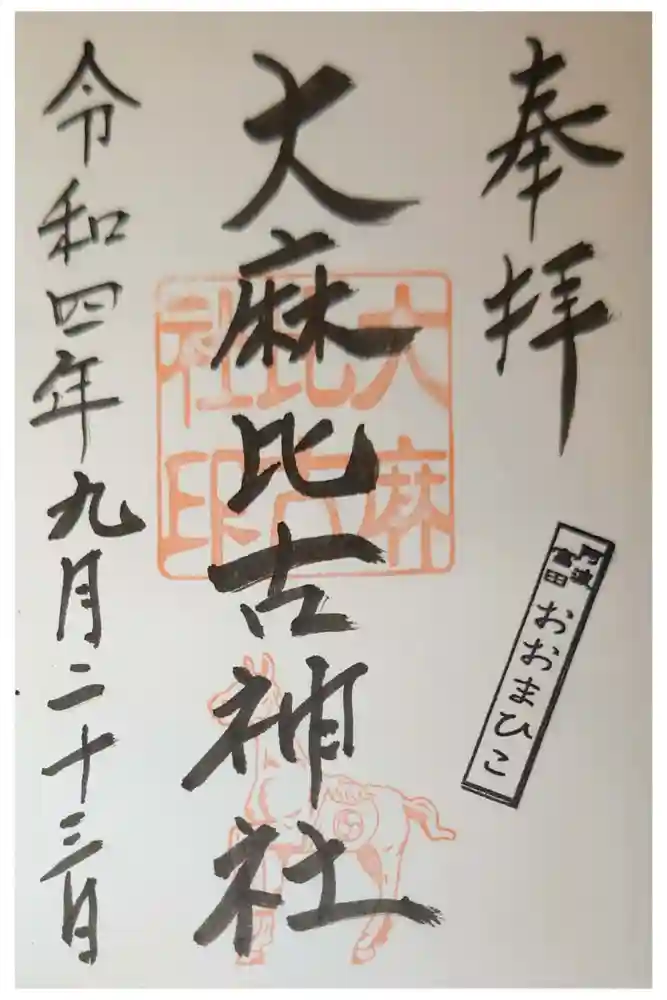 奉拝
阿波
富田
おおまひこ
大麻比古神社
大麻
比古
社印
令和四年九月二十三日